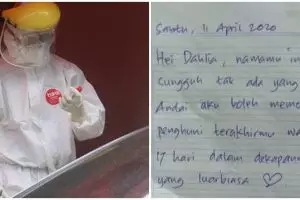 Sabtu, 11 April 2020
Hei Dahlia, namamu in
sungguh tak ada yang
Andai aku boleh memo
penghuni terakhirmu wa
17 hari dalam dekapanm
yang luarbiasa ♡